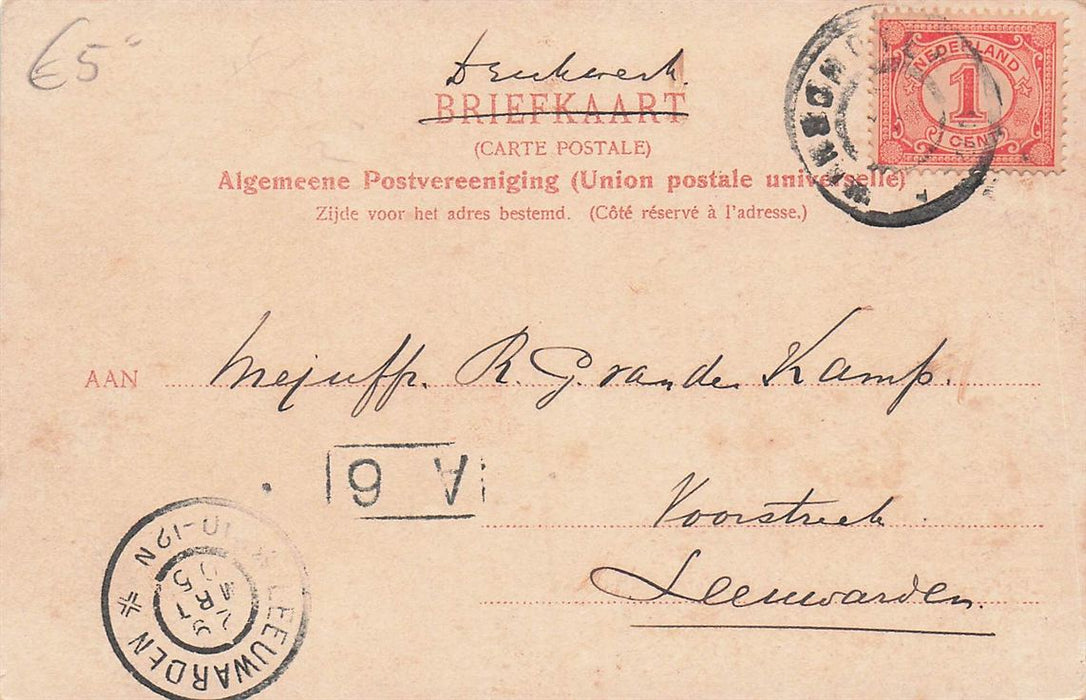 €5-
Drukwerk.
BRIEFKAART
(CARTE POSTALE)
Algemeene Postvereeniging (Union postale universelle)
Zijde voor het adres bestemd. (Côté réservé à l'adresse.)
NEDERLAND
1
CENT
AAN Mejuffr. R. G. van der Kamp.
A 6
Voorstreek
Leeuwarden.
LEEUWARDEN
10-12 N